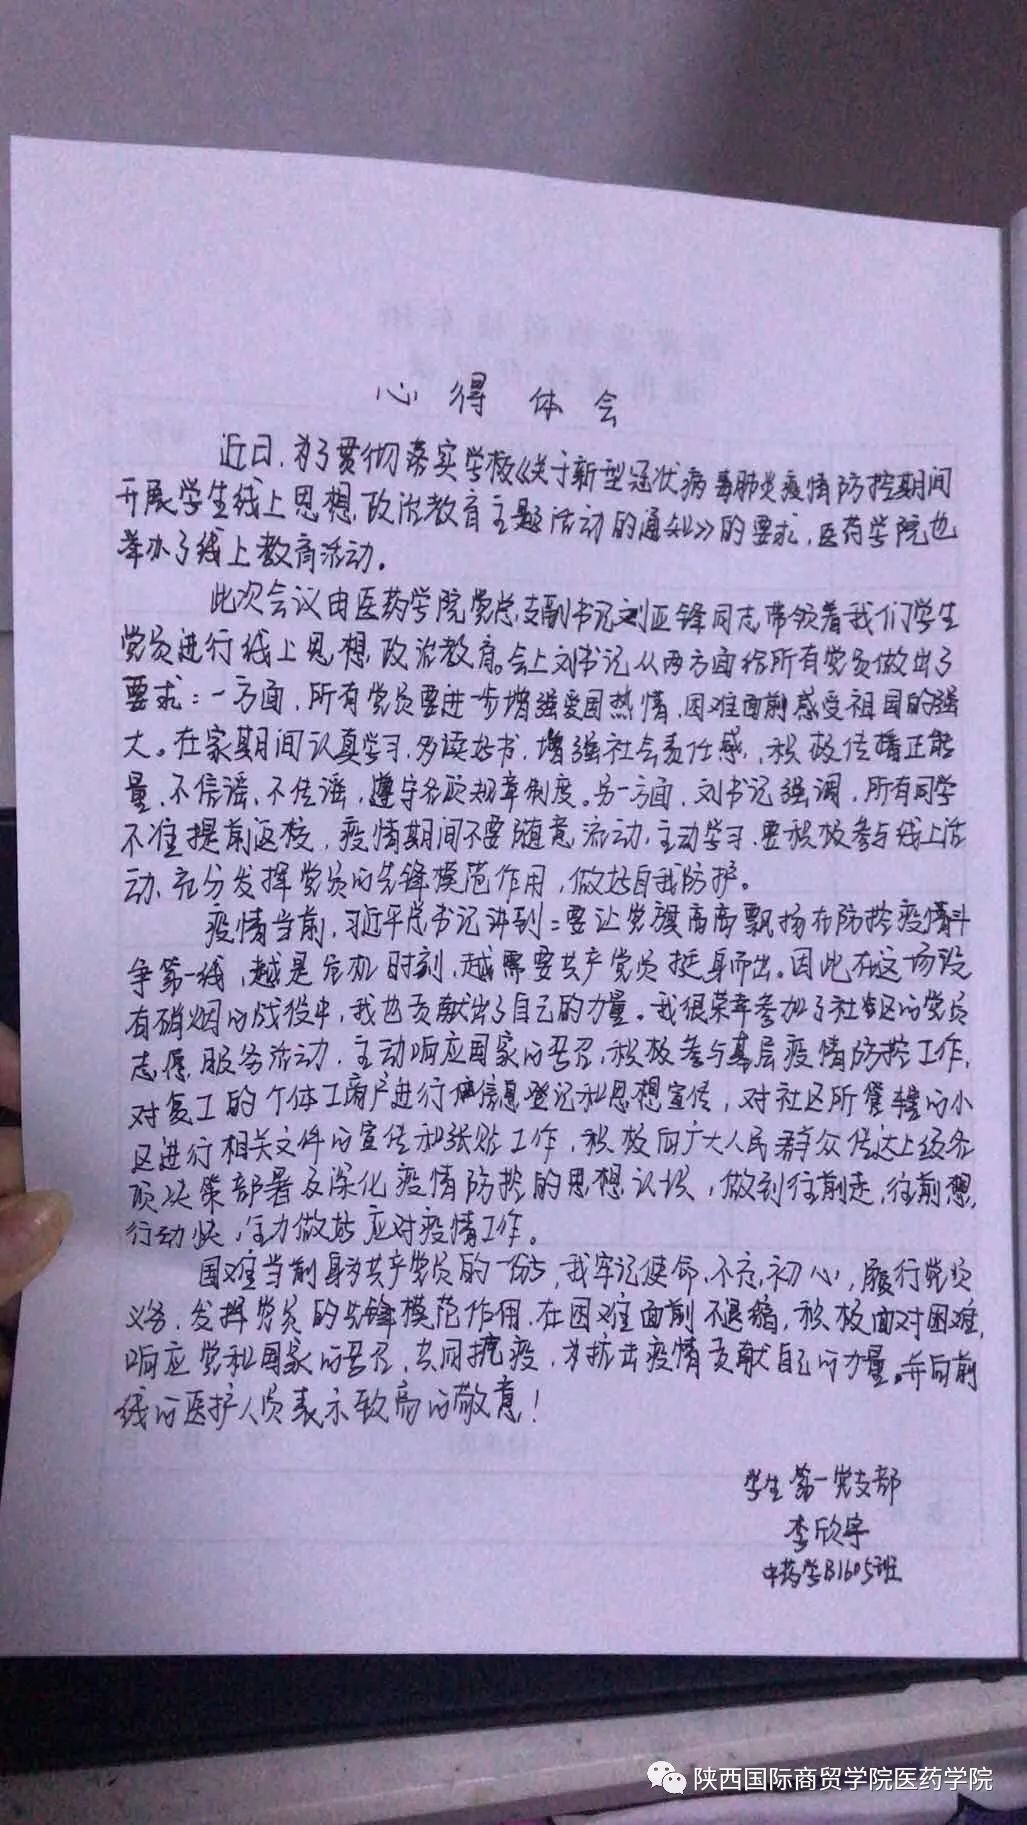 心得体会
近日，为了贯彻落实学校《关于新型冠状病毒肺炎疫情防控期间
开展学生线上思想政治教育主题活动的通知》的要求，医药学院也
举办了线上教育活动。
此次会议由医药学院党总支副书记刘亚锋同志带领着我们学生
党员进行线上思想政治教育。会上刘书记从两方面给所有党员做出了
要求：一方面，所有党员要进一步增强爱国热情，困难面前感受祖国的强
大。在家期间认真学习，多读好书，增强社会责任感，积极传播正能
量，不信谣、不传谣，遵守各项规章制度。另一方面，刘书记强调，所有同学
不准提前返校，疫情期间不要随意流动，主动学习，要积极参与线上活
动，充分发挥党员的先锋模范作用，做好自我防护。
疫情当前，习近平总书记讲到：要让党旗高高飘扬在防控疫情斗
争第一线，越是危机时刻，越需要共产党员挺身而出。因此在这场没
有硝烟的战役中，我也贡献出了自己的力量。我很荣幸参加了社区的党员
志愿服务活动，主动响应国家的号召，积极参与基层疫情防控工作，
对复工的个体工商户进行信息登记和思想宣传，对社区所管辖的小
区进行相关文件的宣传和张贴工作，积极向广大人民群众传达上级各
项决策部署及深化疫情防控的思想认识，做到往前走，往前想，
行动快，全力做好应对疫情工作。
国难当前身为共产党员的一份子，我牢记使命，不忘初心，履行党员
义务，发挥党员的先锋模范作用，在困难面前不退缩，积极面对困难，
响应党和国家的号召，共同抗疫，为抗击疫情贡献自己的力量。并向前
线的医护人员表示致高的敬意！
学生第一党支部
李欣宇
中药学B1605班
陕西国际商贸学院医药学院